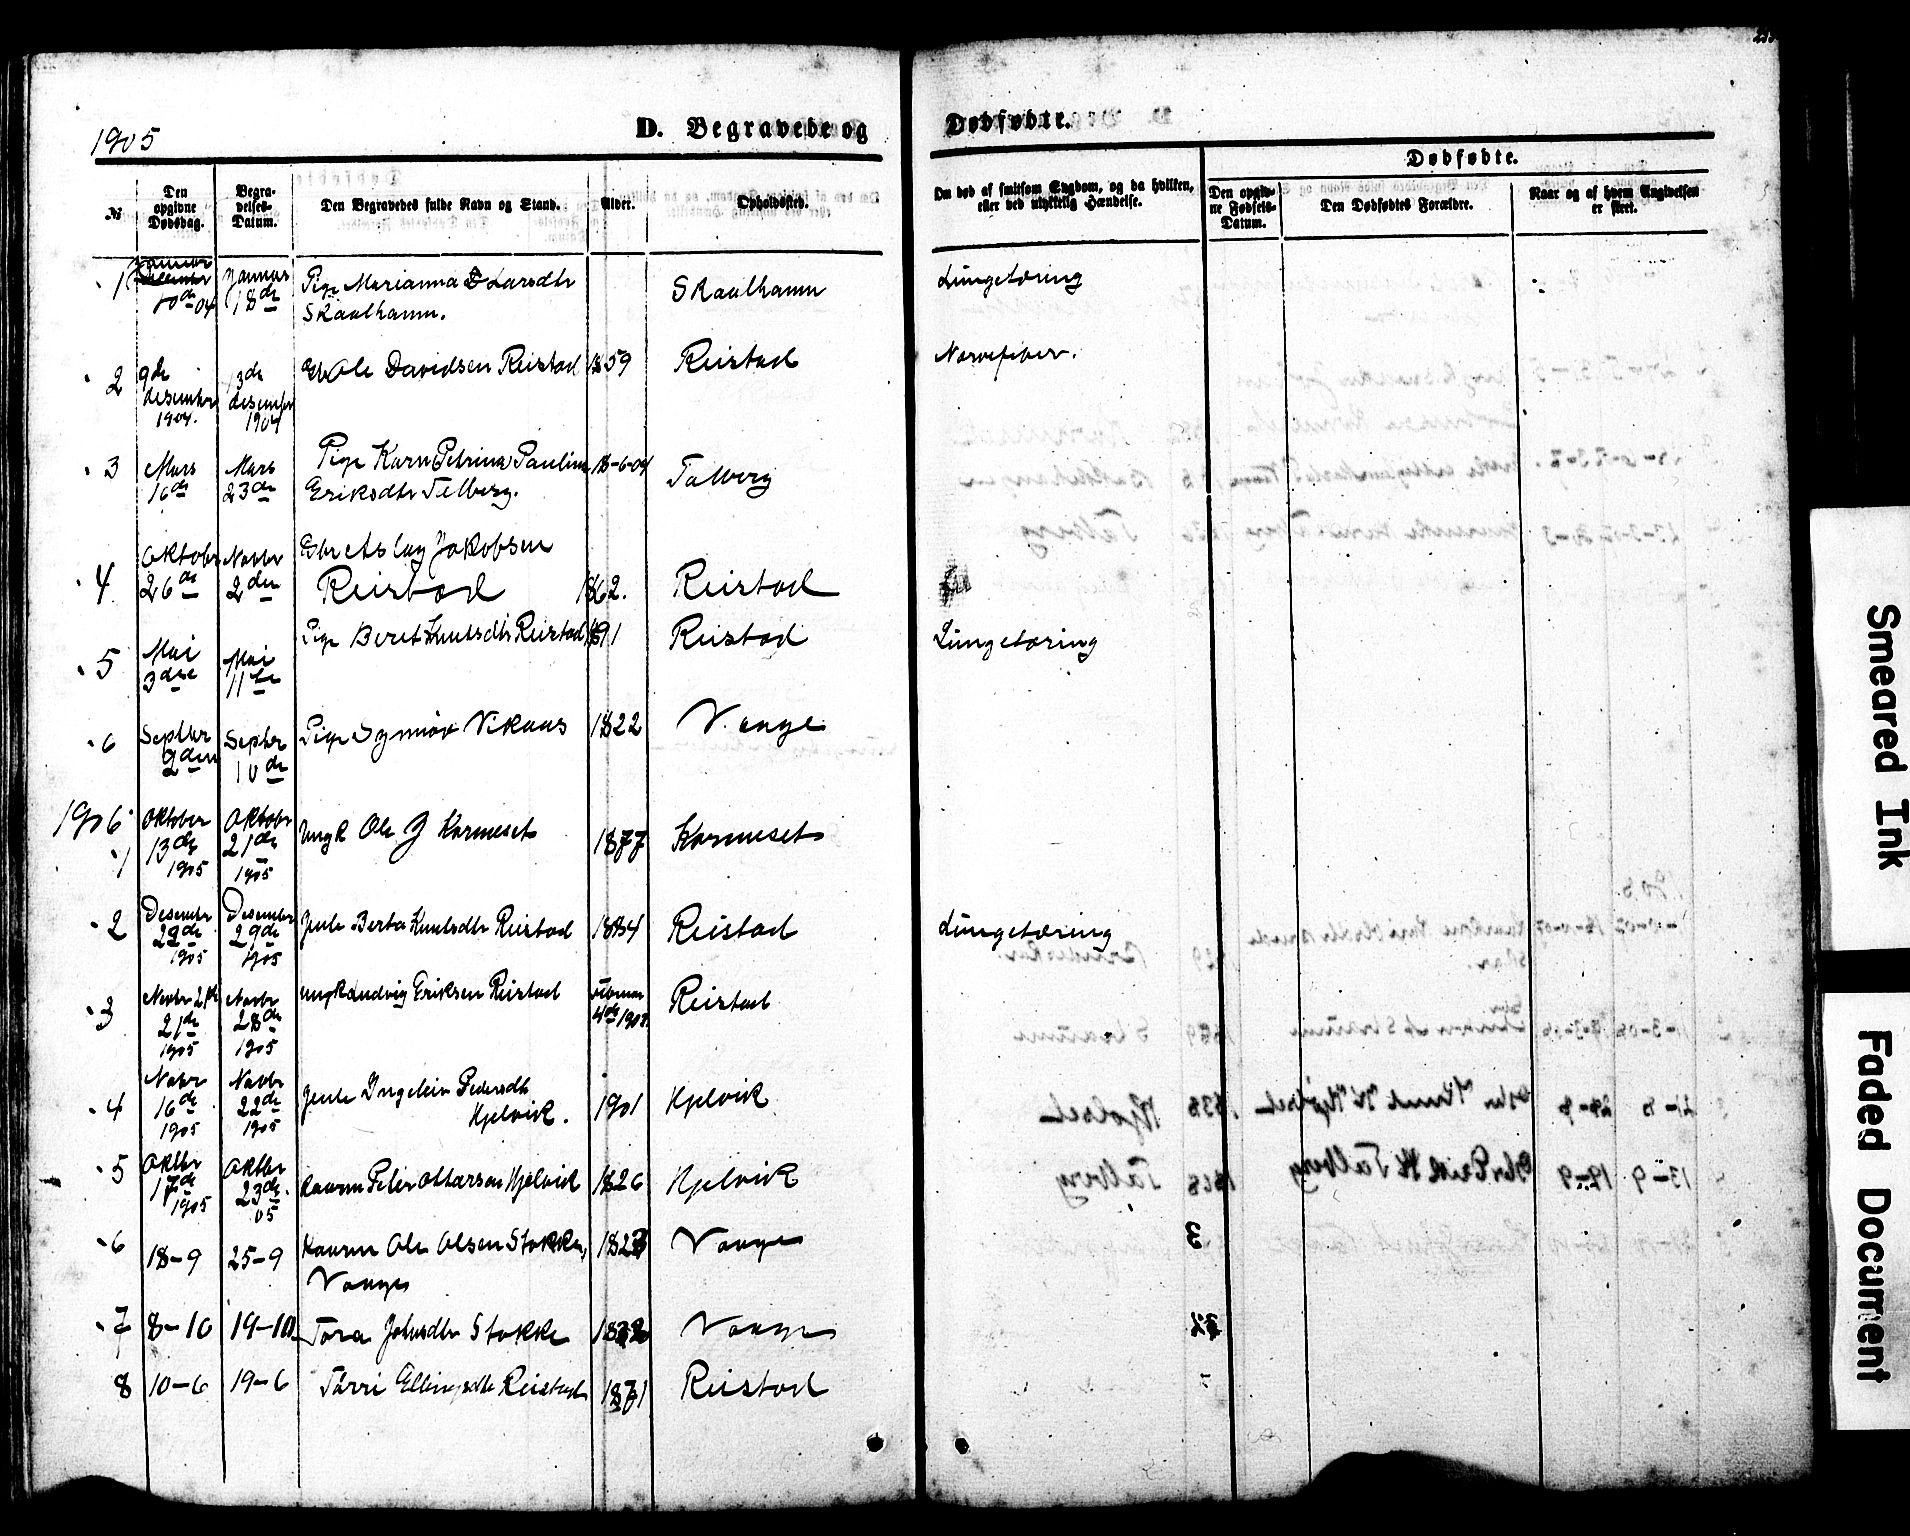 1905
D. Begravede og
Dødfødte.
№
Den opgivne Dødsdag.
Begravelses-Datum.
Den Begravedes fulde Navn og Stand.
Alder.
Opholdssted.
Om død af smitsom Sygdom, og da hvilken, eller ved ulykkelig Hændelse.
Dødfødte.
Den opgivne Fødsels-Datum.
Den Dødfødtes Forældre.
Naar og af hvem Angivelsen er skeet.
1 Januar 10de 04 Januar 18de Pige Marianna Larsdtr Skaalhamn Lungetæring
Skaalhamn.
2 9de desember 1904. 13de desember 1904 Gbr Ole Davidsen Reistad 1859 Reistad Nervefeber.
3 Mars 16de Mars 23de Pige Karn Petrina Pauline 18-6-04 Talberg
Eriksdtr Telberg.
4 Oktobr 26de Novbr 2den Gbr Aslag Jakobsen
Reistad 1862. Reistad
5 Mai 3die Mai 11te Pige Beret Knutsdtr Reistad 1891 Reistad Lungetæring
6 Septbr 9den Septbr 10de Pige Synnøv Vikaas 1822 Vaage
1906
1 Oktober 13de 1905 Oktobr 21de 1905 Ungk Ole J Kormeset 1877 Kormeset
2 Desember 22de 1905 Desember 29de 1905 Jente Berta Knutsdtr Reistad 1884 Reistad Lungetæring
3 Novbr 21de 1905 Novbr 28de 1905 Ungk Ludvig Eriksen Reistad Februar 4de 1903 Reistad
4 Novbr 16de 1905 Novbr 22de 1905 Jente Ingelein Pedersdtr
Hjelvik. 1901 Hjelvik
5 Oktbr 17de 1905 Oktbr 23de 05 Kaarm Peter Ottarsen Hjelvik 1826 Hjelvik
6 18-9 25-9 Kaarm Ole Olsen Stokke, 1823 Vaage
Vaage
7 8-10 19-10 Tora Johnsdtr Stokke 1832 Vaage
8 10-6 19-6 Tårri Ellingsdtr Reistad 1871 Reistad
Smeared Ink
Faded Document